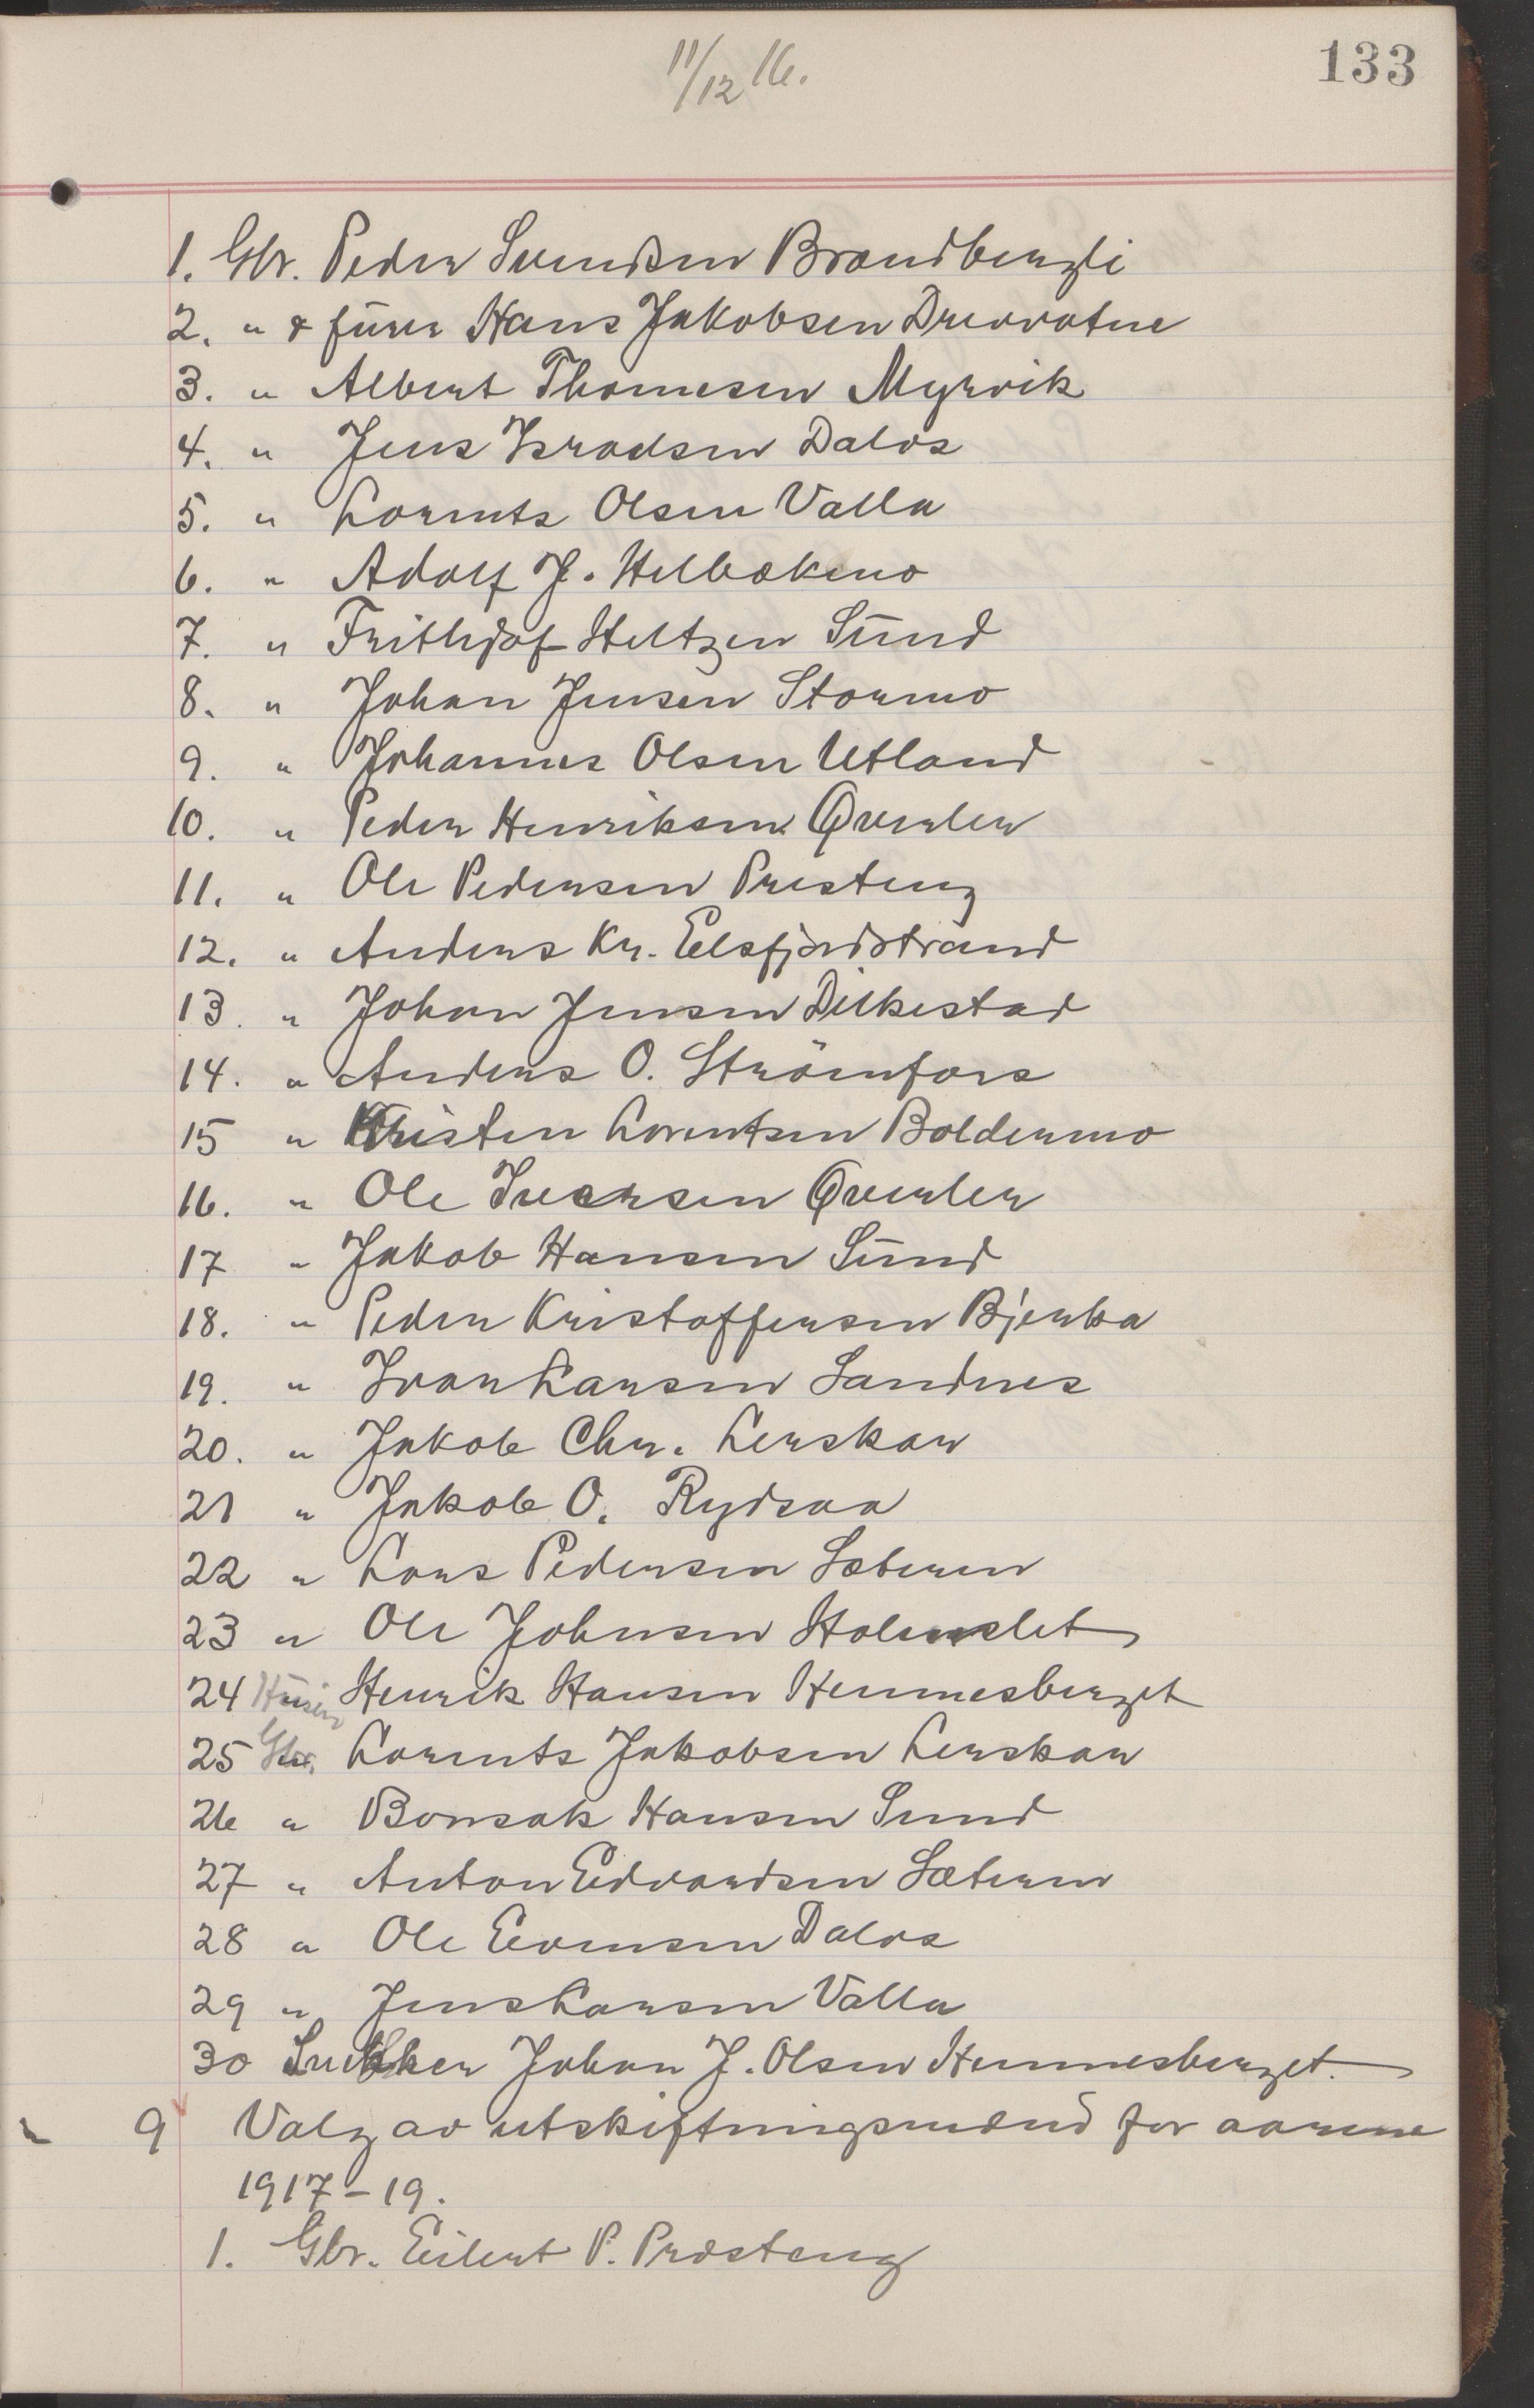 133
11/12 16.
1. Gbr. Peder Svendsen Brandbergli
2. " & furer Hans Jakobsen Drevvatne
3. " Albert Thomesen Myrvik
4. " Jens Israelsen Dalos
5. " Lorents Olsen Valla
6. " Adolf J. Helbækmo
7. " Frithjof Heltzen Sund
8. " Johan Jensen Stormo
9. " Johannes Olsen Utland
10. " Peder Henriksen Øverler
11. " Ole Pedersen Presteng
12. " Anders Kr. Elsfjordstrand
13. " Johan Jensen Dilkestad
14. " Anders O. Strömfors
15 " Kristen Lorentsen Boldermo
16. " Ole Iversen Øverler
17 " Jakob Hansen Sund
18. " Peder Kristoffersen Bjerka
19. " Ivar Larsen Sandnes
20. " Jakob Chr. Lerskar
21 " Jakob O. Rydsaa
22 " Lars Pedersen Sæteren
23 " Ole Johnsen Holmslet
24 Huser Henrik Hansen Hemnesberget
25 Gbr. Lorents Jakobsen Lerskar
26 " Bonsak Hansen Sund
27 " Anton Edvardsen Sæteren
28 " Ole Evensen Dalos
29 " Jens Larsen Valla
30 Snekker Johan J. Olsen Hemnesberget.
9 Valg av utskiftningsmænd for aarene
1917-19.
1. Gbr. Eilert P. Præsteng